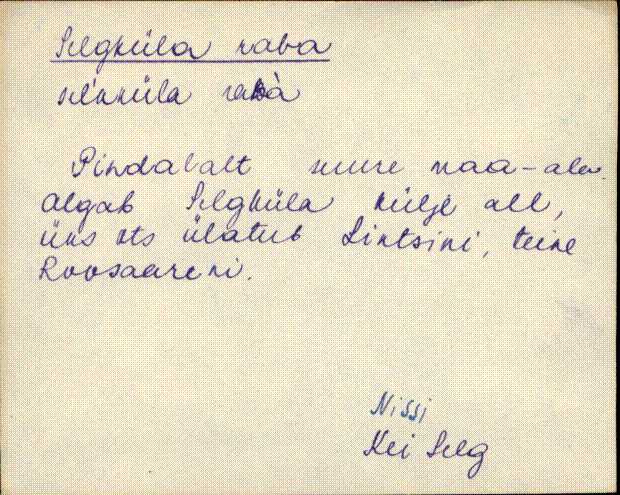 Selgküla raba
sel'kküla rabà
Pindalalt suure maa-ala.
algab Selgküla külje all,
üks ots ülatub Lintsini, teine
Roosaareni.
Nissi
Kei Selg